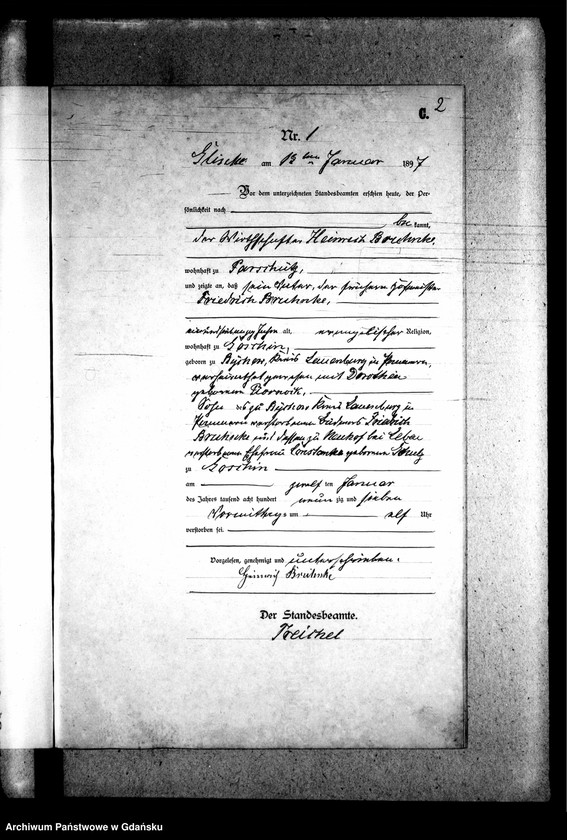 C. 2
Nr. 1
am 13ten Januar 1897
Vor dem unterzeichneten Standesbeamten erschien heute, der Per-
sönlichkeit nach
bekannt,
der Wirthschafter Heinrich
wohnhaft zu
und zeigte an, daß sein Vater, der frühere Hofmeister
Friedrich
Jahre alt, evangelischer Religion,
wohnhaft zu Goschin,
geboren zu Bychow, Kreis Lauenburg in Pommern,
verheirathet gewesen mit Dorothea
geborenen
Sohn des zu Bychow Kreis Lauenburg in
Pommern verstorbenen Friedrich
und dessen zu Neuhof bei Leba
verstorbenen Ehefrau Constantia geborenen
zu Goschin
am zwölften Januar
des Jahres tausend acht hundert neunzig und sieben
Vormittags um elf Uhr
verstorben sei.
Vorgelesen, genehmigt und unterschrieben.
Heinrich
Der Standesbeamte.
Archiwum Państwowe w Gdańsku